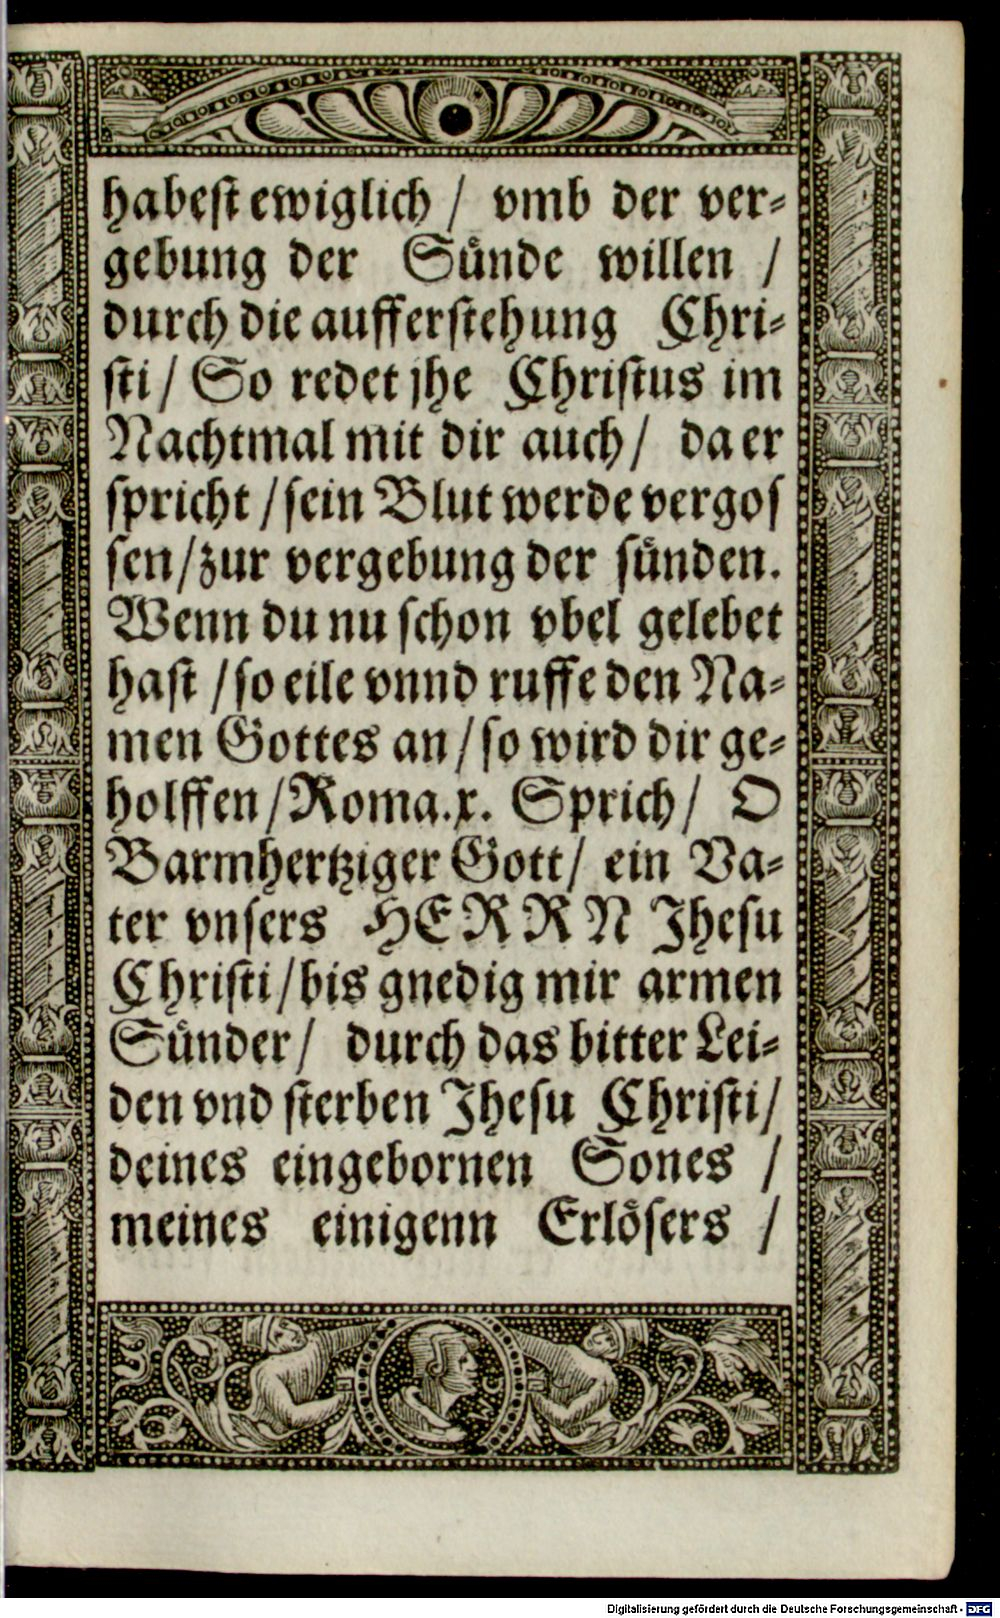 habest ewiglich / vmb der ver-
gebung der Sünde willen /
durch die aufferstehung Chri-
sti / So redet jhe Christus im
Nachtmal mit dir auch / da er
spricht / sein Blut werde vergos
sen / zur vergebung der sünden.
Wenn du nu schon vbel gelebet
hast / so eile vnnd ruffe den Na-
men Gottes an / so wird dir ge-
holffen / Roma.x. Sprich / O
Barmhertziger Gott / ein Va-
ter vnsers HERRN Jhesu
Christi / bis gnedig mir armen
Sünder / durch das bitter Lei-
den vnd sterben Jhesu Christi /
deines eingebornen Sones /
meines einigenn Erlösers /
Digitalisierung gefördert durch die Deutsche Forschungsgemeinschaft - DFG